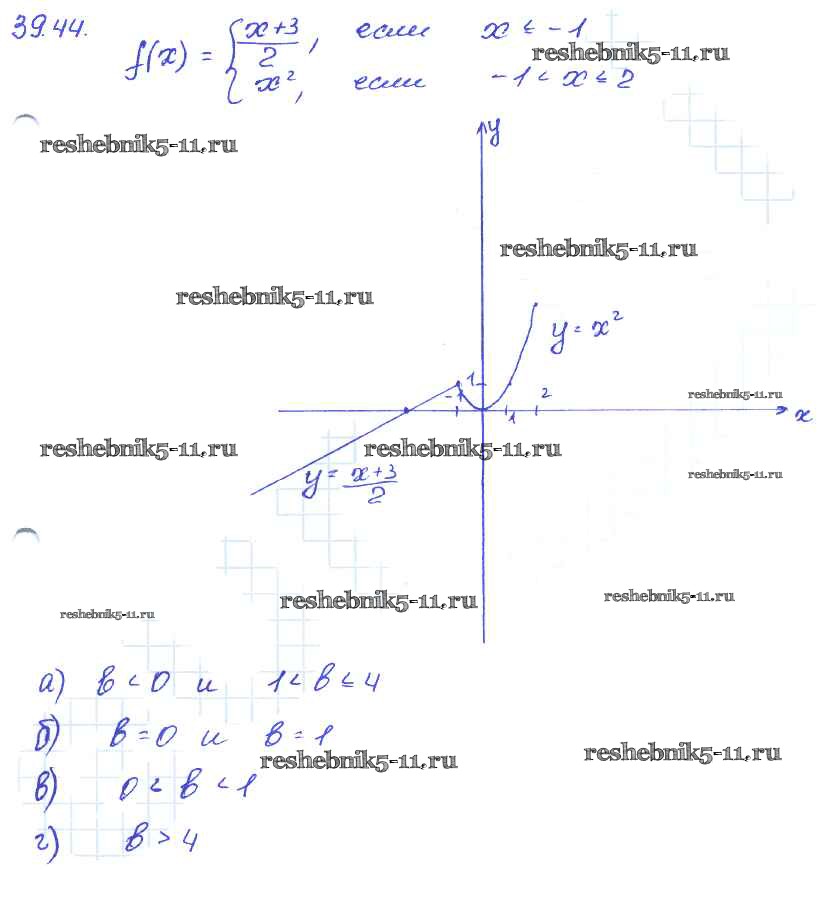 39.44.
f(x) = { x+3/2, если x ≤ -1
reshebnik5-11.ru
x², если -1 < x ≤ 2
y
reshebnik5-11.ru
reshebnik5-11.ru
reshebnik5-11.ru
y = x²
1
-1
1
2
reshebnik5-11.ru
x
reshebnik5-11.ru
reshebnik5-11.ru
y = x+3/2
reshebnik5-11.ru
reshebnik5-11.ru
reshebnik5-11.ru
reshebnik5-11.ru
а) в < 0 и 1 < в ≤ 4
б) в = 0 и в = 1
reshebnik5-11.ru
reshebnik5-11.ru
в) 0 < в < 1
г) в > 4